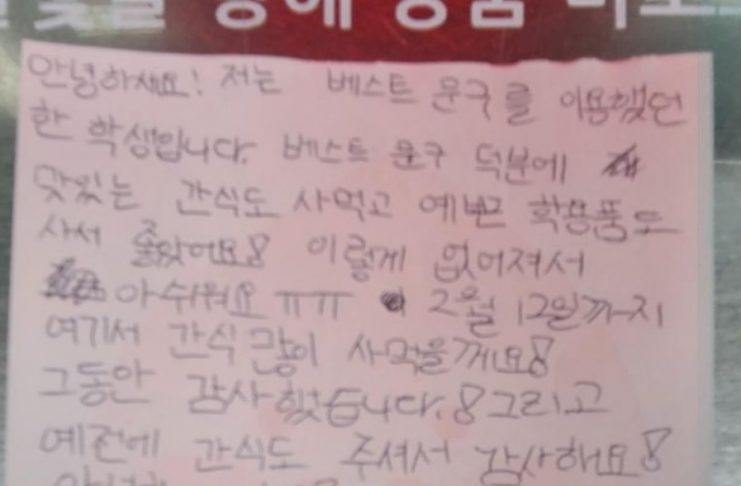 안녕하세요! 저는 베스트 문구를 이용했던
한 학생입니다. 베스트 문구 덕분에
맛있는 간식도 사먹고 예쁜 학용품도
사서 좋았어요! 이렇게 없어져서
아쉬워요 ㅠㅠ 2월 12일까지
여기서 간식 많이 사먹을게요!
그동안 감사했습니다.! 그리고
예전에 간식도 주셔서 감사해요!